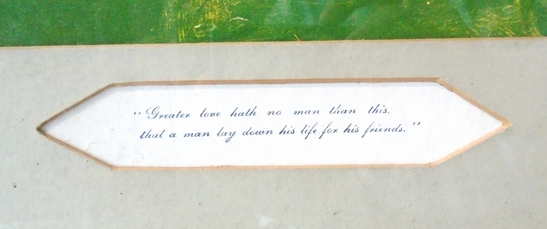 "Greater love hath no man than this,
that a man lay down his life for his friends."